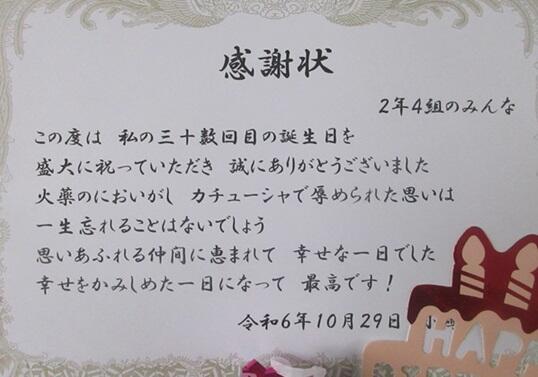 感謝状
2年4組のみんな
この度は 私の三十数回目の誕生日を
盛大に祝っていただき 誠にありがとうございました
火薬のにおいがし カチューシャで辱められた思いは
一生忘れることはないでしょう
思いあふれる仲間に恵まれて 幸せな一日でした
幸せをかみしめた一日になって 最高です!
令和6年10月29日 小
HAPP